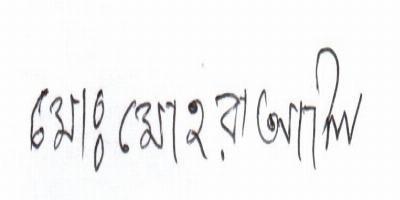 মোঃ মোহরা আলি